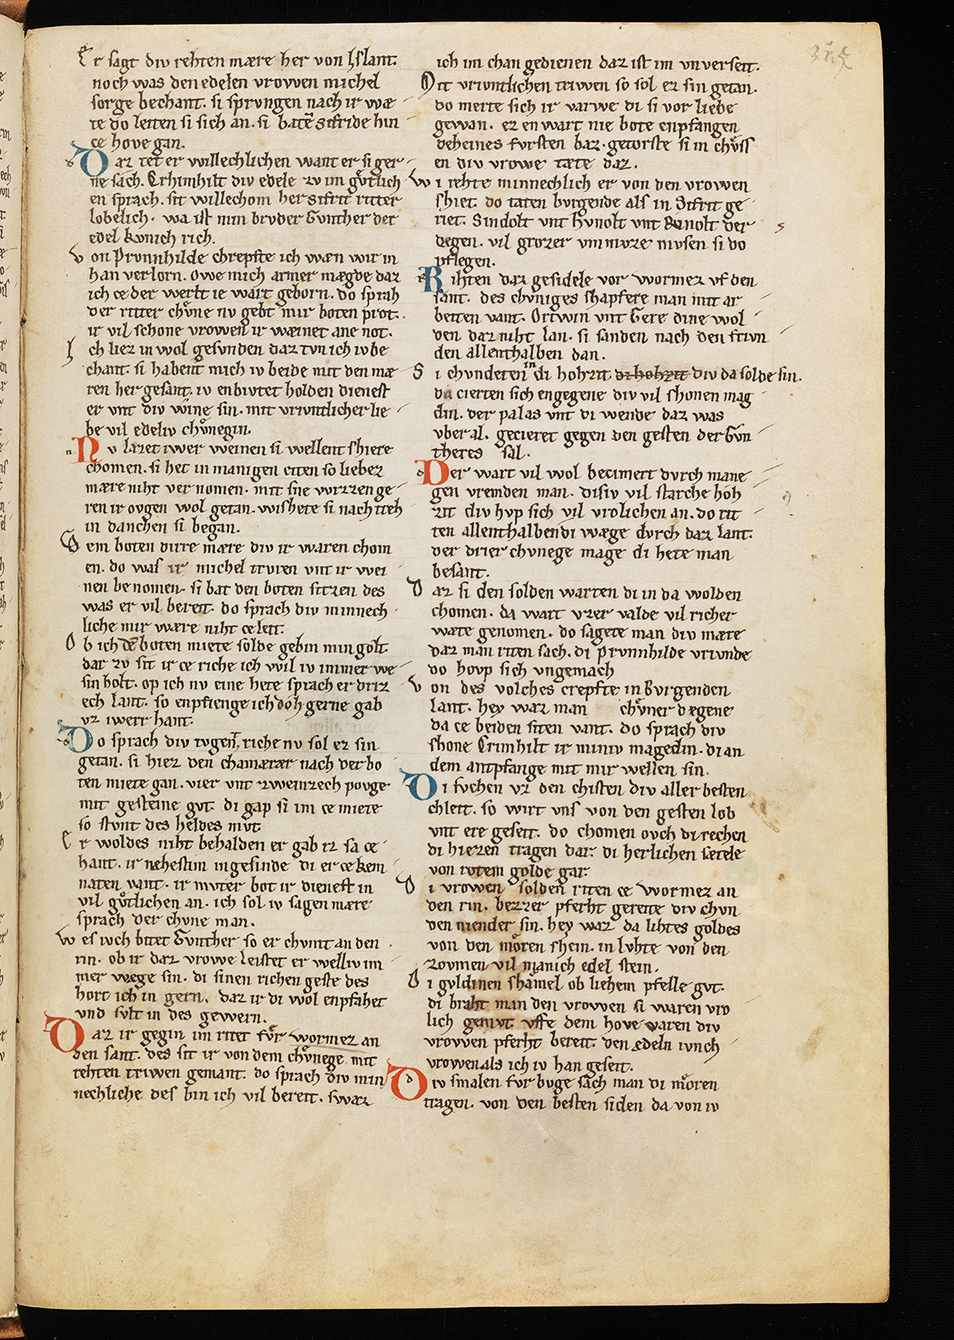 Er sagt div rehten mære her von Islant.
noch was den edelen vrowen michel
sorge bechant. si sprvngen nach ir wæ
te do leiten si sich an. si baten Sifride hin
ce hove gan.
Daz tet er willechlichen want er si ger
ne sach. Crimhilt div edele zv im gvtlich
en sprach. sit willechom her Sifrit ritter
lobelich. wa ist min brvder Gvnther der
edel kvnich rich.
Von Prvnnhilde chrepfte ich wæn wir in
han verlorn. Owe mich armer mægde daz
ich ce der werlt ie wart geborn. do sprah
der ritter chvne nv gebt mir boten prot.
ir vil schone vrowen ir weinet ane not.
Ich liez in wol gesvnden daz tvn ich iv be
chant. si habent mich iv beide mit den mæ
ren her gesant. iv enbivtet holden dienest
er vnt div wine sin. mit vrivntlicher lie
be vil edeliv chvnegin.
Nv lazet iwer weinen si wellent shiere
chomen. si het in manigen citen so liebez
mære niht vernomen. mit sne wizzen ge
ren ir ovgen wol getan. wishete si nach treh
in danchen si began.
Dem boten dirre mære div ir waren chom
en. do was ir michel trvren vnt ir wei
nen benomen. si bat den boten sitzen des
was er vil bereit. do sprach div minnech
liche mir wære niht ce leit.
Ob ich ze boten miete solde gebin min golt.
dar zv sit ir ce riche ich wil iv immer we
sin holt. op ich nv eine hete sprach er driz
ech lant. so enpfienge ich doh gerne gab
vz iwerr hant.
Do sprach div tvgent riche nv sol ez sin
getan. si hiez den chamærær nach der bo
ten miete gan. vier vnt zweinzech povge
mit gesteine gvt. di gap si im ce miete
so stvnt des heldes mvt
Er woldes niht behalden er gab iz sa ce
hant. ir næhestim ingesinde di er ce kem
naten vant. ir mvter bot ir dienest in
vil gvtlichen an. ich sol iv sagen mære
sprach der chvne man.
Wes ivch bitet Gvnther so er chvmt an den
rin. ob ir daz vrowe leistet er welliv im
mer wæge sin. di sinen richen geste des
hort ich in gern. daz ir di wol enpfahet
vnd svlt in des gewern.
Daz ir gegin im ritet fvr wormez an
den sant. des sit ir von dem chvnege mit
rehten triwen gemant. do sprach div min
nechliche des bin ich vil bereit. swaz
ich im chan gedienen daz ist im vnverseit.
Mit vrivntlichen triwen so sol ez sin getan.
do merte sich ir varwe di si vor liebe
gewan. ez enwart nie bote enpfangen
deheines fvrsten baz. getorste si in chvss
en div vrowe tæte daz.
Wi rehte minnechlich er von den vrowen
shiet. do taten bvrgende als in Sifrit ge
riet. Sindolt vnt Hvnolt vnt Rvnolt der
degen. vil grozer vnmvze mvsen si do
pflegen.
Rihten daz gesidele vor wormez vf den
sant. des chvniges shapfere man mit ar
beiten vant. Ortwin vnt Gere dine wol
den daz niht lan. si sanden nach den frivn
den allenthalben dan.
Si chvndeten in di hohzit di hohzit div da solde sin.
da cierten sich engegene div vil shonen mag
din. der palas vnt di wende daz was
vberal. gecieret gegen den gesten der Gvn
theres sal.
Der wart vil wol becimert dvrch mane
gen vremden man. disiv vil starche hoh
zit div hvp sich vil vrolichen an. do rit
ten allenthalben di wæge dvrch daz lant.
der drier chvnege mage di hete man
besant.
Daz si den solden warten di in da wolden
chomen. da wart vzer valde vil richer
wæte genomen. do sagete man div mære
daz man riten sach. di Prvnnhilde vrivnde
do hovp sich vngemach
Von des volches crepfte in Bvrgenden
lant. hey waz man chvner dægene
da ce beiden siten vant. do sprach div
shone Crimhilt ir miniv magedin. di an
dem antpfange mit mir wellen sin.
Di svchen vz den chisten div aller besten
chleit. so wirt vns von den gesten lob
vnt ere geseit. do chomen ovch di rechen
di hiezen tragen dar di herlichen sætele
von rotem golde gar.
Di vrowen solden riten ce wormez an
den rin. bezzer pferht gereite div chvn
den niender sin. hey waz da lihtes goldes
von den moren shein. in lvhte von den
zovmen vil manich edel stein.
Di gvldinen shamel ob liehem pfelle gvt.
di braht man den vrowen si waren vro
lich gemvt. vffe dem hove waren div
vrowen pferht bereit. den edeln ivnch
vrowen als ich iv han geseit.
Div smalen fvrbvge sach man di moren
tragen. von den besten siden da von iv